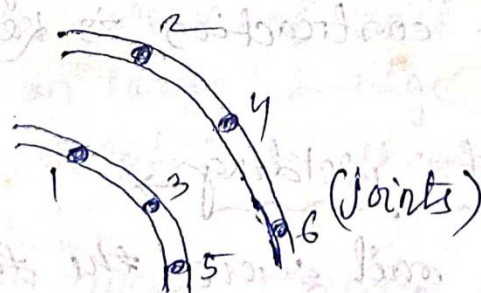 2
4
1
3
6 (Joints)
5